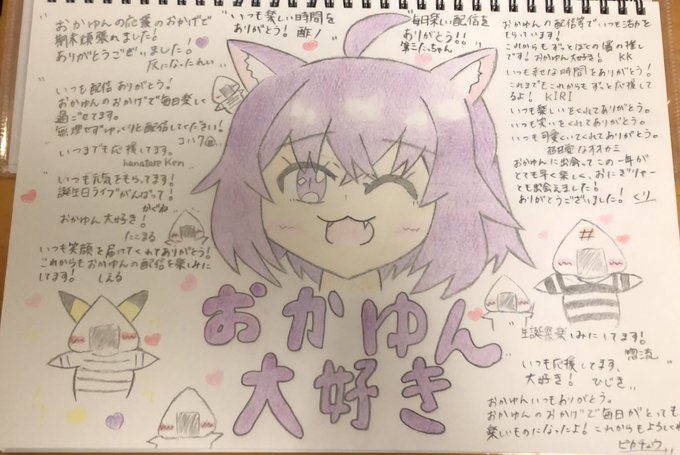 おかゆんの応援のおかげで
期末頑張れました!
ありがとうございました!
灰になったれい
"いつも楽しい時間を
ありがとう! 酢!"
"毎日楽しい配信を
ありがとう!!
第三たっちゃん"
おかゆんの配信等でいつも活力を
もらっています!
これからもずっとぼくの1番の推し
です! おかゆん大好き! KK
いつも幸せな時間をありがとう!
これまでもこれからもずっと応援して
るよ! KIRI
いつも楽しいをくれてありがとう。
いつも笑いをくれてありがとう。
いつも可愛くいてくれてありがとう。
超可愛なオオカミ
おかゆんに出会ってこの一年が
とても早く楽しく、おにぎりゃー
とも出会えました!
ありがとうございました! くり
"いつも配信ありがとう!
おかゆんのおかげで毎日楽しく
過ごせてます。
無理せずゆっくりと配信してください!
"いつまでも応援してます。
hanatare Ken
"いつも元気をもらってます!
誕生日ライブがんばって!
かぐね
おかゆん大好き!
たこまる
いつも笑顔を届けてくれてありがとう!
これからもおかゆんの配信を楽しみに
してます! しえる
おかゆん
大好き
生誕祭楽しみにしてます!
"いつも応援してます、
大好き! ひじき
おかゆんいつもありがとう。
おかゆんのおかげで毎日がとても
楽しいものになったよ! これからもよろしくね
ピカチュウ